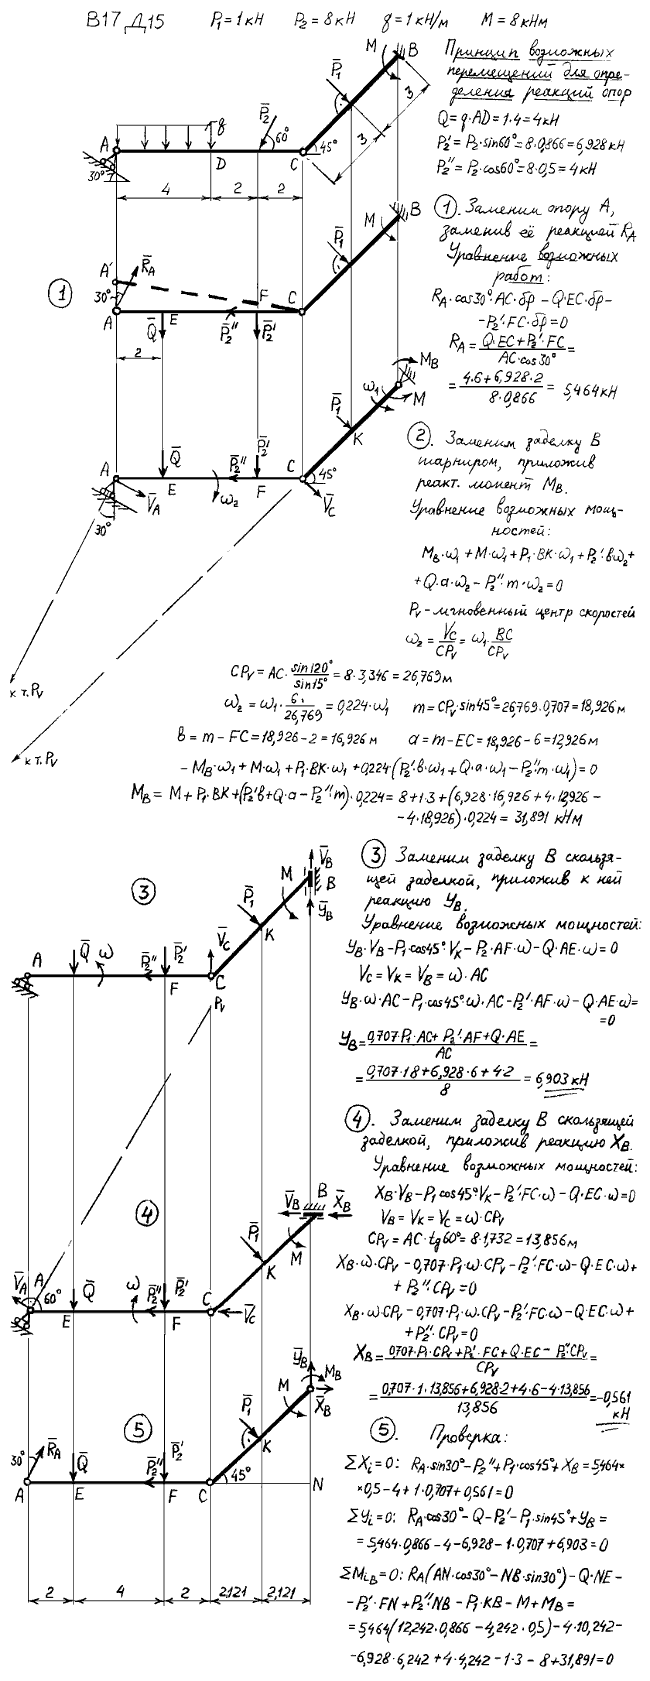 В17 Д15 P₁=1кН P₂=8кН q=1кН/м M=8кНм
Принцип возможных
перемещений для опре-
деления реакций опор
Q=q·AD=1·4=4кН
P₂'=P₂·sin60°=8·0,866=6,928кН
P₂''=P₂·cos60°=8·0,5=4кН
A 30° 4 q D 2 P̄₂ 60° 2 C 45° P̄₁ M B 3 3
① . Заменим опору А,
заменив её реакцией R_A
Уравнение возможных
работ:
R_A·cos30°·AC·δφ–Q·EC·δφ–
–P₂'·FC·δφ=0
R_A=(Q·EC+P₂'·FC)/(AC·cos30°)=
=(4·6+6,928·2)/(8·0,866)=5,464кН
① A' R̄_A 30° A Q̄ E P̄₂'' F P̄₂' C P̄₁ M B
2
② . Заменим заделку В
шарниром, приложив
реакт. момент M_B.
Уравнение возможных мощ-
ностей:
M_B·ω₁+M·ω₁+P₁·BK·ω₁+P₂'·bω₂+
+Q·a·ω₂–P₂''·m·ω₂=0
P_V – мгновенный центр скоростей
ω₂=V_C/CP_V=ω₁·BC/CP_V
A V̄_A 30° Q̄ E P̄₂'' P̄₂' F ω₂ C 45° V̄_C P̄₁ K ω₁ M M_B
к т. P_V
к т. P_V
CP_V=AC·sin120°/sin15°=8·3,346=26,769м
ω₂=ω₁·6/26,769=0,224·ω₁ m=CP_V·sin45°=26,769·0,707=18,926м
b=m–FC=18,926–2=16,926м a=m–EC=18,926–6=12,926м
–M_B·ω₁+M·ω₁+P₁·BK·ω₁+0,224(P₂'·b·ω₁+Q·a·ω₁–P₂''·m·ω₁)=0
M_B=M+P₁·BK+(P₂'b+Q·a–P₂''m)·0,224=8+1·3+(6,928·16,926+4·12,926–
–4·18,926)·0,224=31,891 кНм
③ Заменим заделку В скользя-
щей заделкой, приложив к ней
реакцию Y_B.
Уравнение возможных мощностей:
Y_B·V_B–P₁·cos45°·V_K–P₂·AF·ω–Q·AE·ω=0
V_C=V_K=V_B=ω·AC
Y_B·ω·AC–P₁·cos45°·ω·AC–P₂'·AF·ω–Q·AE·ω=
=0
Y_B=(0,707·P₁·AC+P₂'·AF+Q·AE)/AC=
=(0,707·1·8+6,928·6+4·2)/8=6,903кН
③ A Q̄ E ω P̄₂'' P̄₂' F V̄_C C P_V P̄₁ K M V̄_B B Ȳ_B
④ . Заменим заделку В скользящей
заделкой, приложив реакцию X_B.
Уравнение возможных мощностей:
X_B·V_B–P₁·cos45°V_K–P₂'·FC·ω)–Q·EC·ω=0
V_B=V_K=V_C=ω·CP_V
CP_V=AC·tg60°=8·1,732=13,856м
X_B·ω·CP_V–0,707·P₁·ω·CP_V–P₂'·FC·ω–Q·EC·ω+
+P₂''·CP_V=0
X_B·ω·CP_V–0,707·P₁·ω·CP_V–P₂'·FC·ω–Q·EC·ω+
+P₂''·CP_V=0
X_B=(0,707·P₁·CP_V+P₂'·FC+Q·EC–P₂''·CP_V)/CP_V=
=(0,707·1·13,856+6,928·2+4·6–4·13,856)/13,856=–0,561
кН
④ V̄_A A 60° Q̄ E ω P̄₂'' P̄₂' F C V̄_C P̄₁ K M V̄_B B X̄_B
⑤ . Проверка:
ΣX_i=0: R_A·sin30°–P₂''+P₁·cos45°+X_B=5,464×
×0,5–4+1·0,707+0,561=0
ΣY_i=0: R_A·cos30°–Q–P₂'–P₁·sin45°+Y_B=
=5,464·0,866–4–6,928–1·0,707+6,903=0
ΣM_iB=0: R_A(AN·cos30°–NB·sin30°)–Q·NE–
–P₂'·FN+P₂''·NB–P₁·KB–M+M_B=
=5,464(12,242·0,866–4,242·0,5)–4·10,242–
–6,928·6,242+4·4,242–1·3–8+31,891=0
⑤ 30° R̄_A A Q̄ E P̄₂'' P̄₂' F C 45° P̄₁ K M Ȳ_B M_B X̄_B N
2 4 2 2,121 2,121